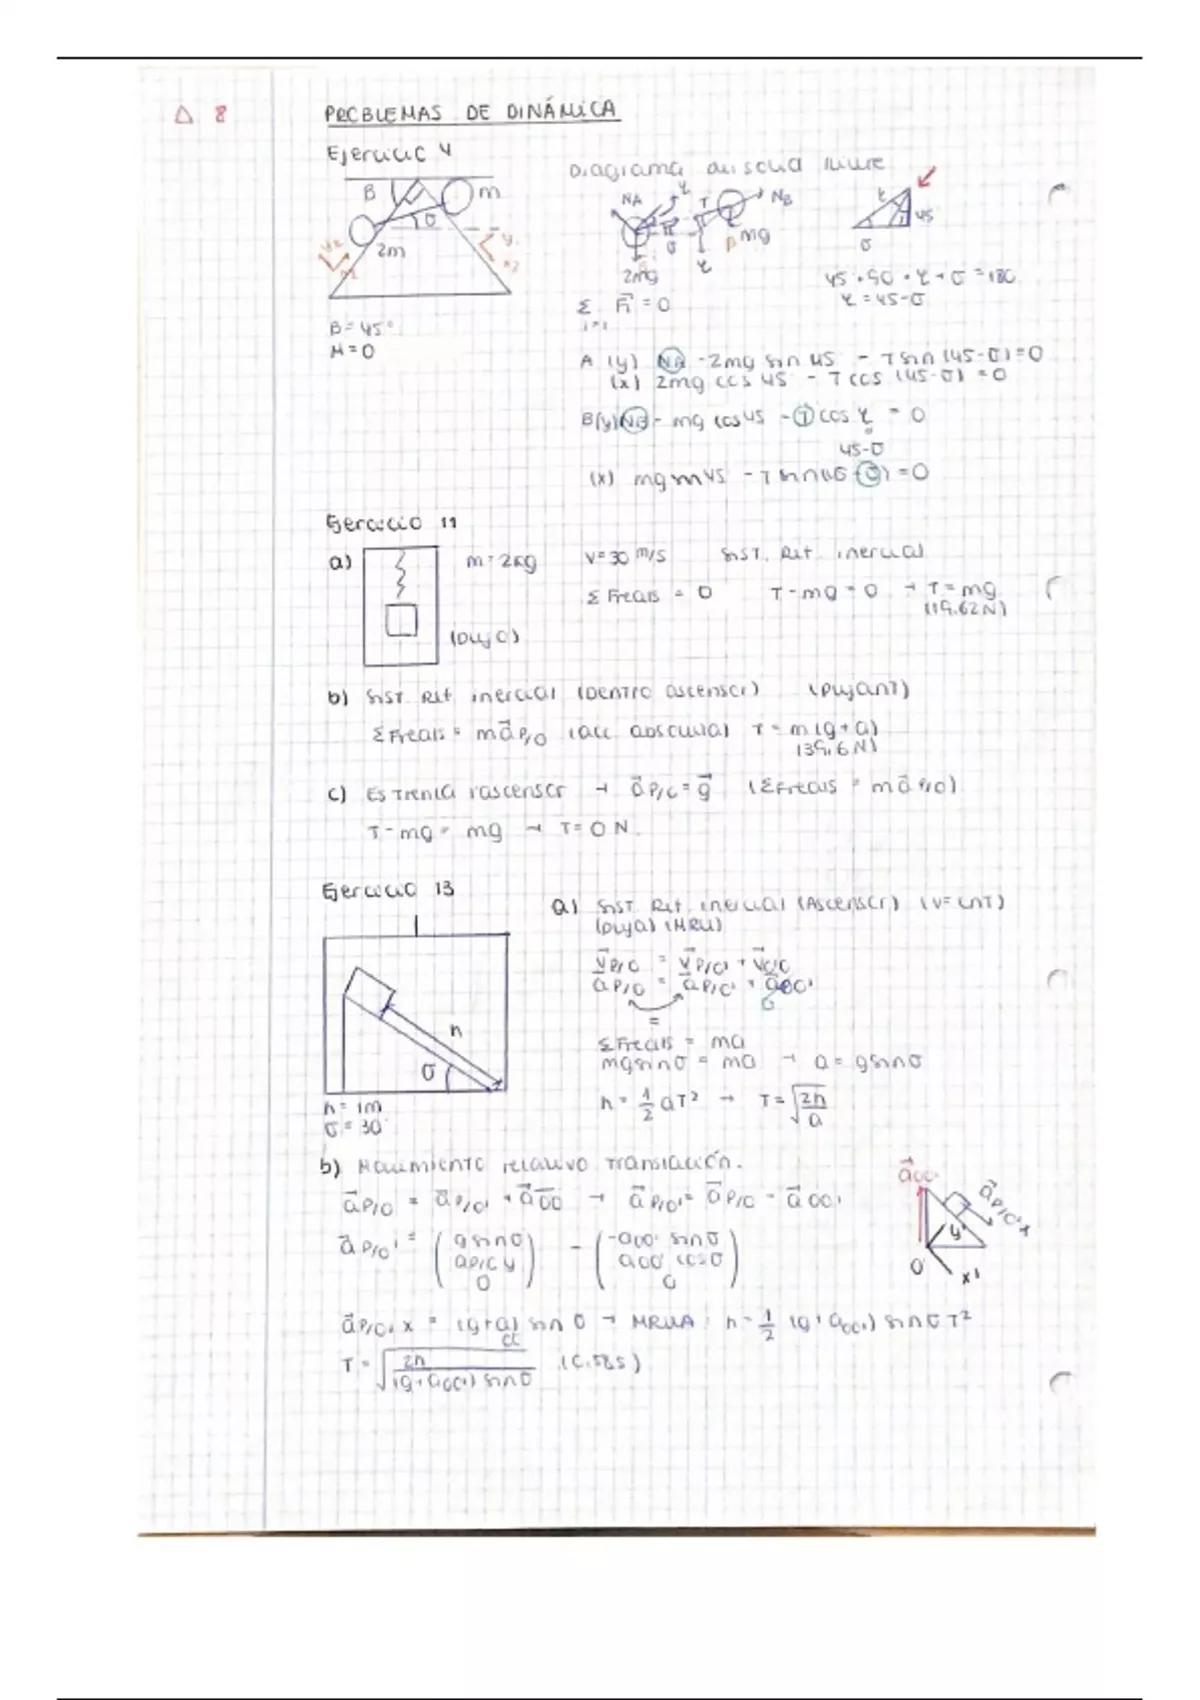 △ 8
PROBLEMAS DE DINÁMICA
Ejercicio 4
Diagrama del solid lliure
B m
σ
2m
y2 x1 y1 x2
NA γ T NB
σ P mg
2mg γ
γ 45
σ
45 + 90 + γ + σ = 180
γ = 45-σ
B = 45°
M = 0
Σ Fi = 0
i=1
A (y) NA - 2mg sin 45 - T sin (45-σ) = 0
(x) 2mg cos 45 - T cos (45-σ) = 0
B(y) NB - mg cos 45 - T cos γ = 0
45-σ
(x) mg sin 45 - T sin (45-σ) = 0
Ejercicio 11
a) m = 2kg v = 30 m/s SIST. Ref. inercial
Σ Freals = 0 T - mg = 0 → T = mg
(19.62N)
(puja)
b) SIST. Ref. inercial (Dentro ascensor) (pujant)
Σ Freals = m a P/O (acc. absoluta) T = m (g + a)
(39.6 N)
c) Es trenca l'ascensor → a P/O = g (Σ Freals = m a P/O)
T - mg = mg → T = 0 N.
Ejercicio 13
a) SIST. Ref. inercial (Ascensor) (v = cnt)
(puja) (MRU)
v P/O = v P/O' + v O'O
a P/O = a P/O' + a OO'
0
=
Σ Freals = ma
mg sin σ = ma → a = g sin σ
h = 1/2 a T² → T = √ 2h / a
h
σ
h = 1m
σ = 30
b) Movimiento relativo translación.
a P/O = a P/O' + a OO' → a P/O' = a P/O - a OO'
a P/O' = ( g sin σ a P/O y 0 ) - ( -aOO' sin σ aOO' cos σ 0 )
a OO' a P/O' x
y'
O' x'
a P/O' x = (g + a) sin σ → MRUA: h = 1/2 (g + aOO') sin σ T²
OO'
T = √ 2h / (g + aOO') sin σ (0.58s)